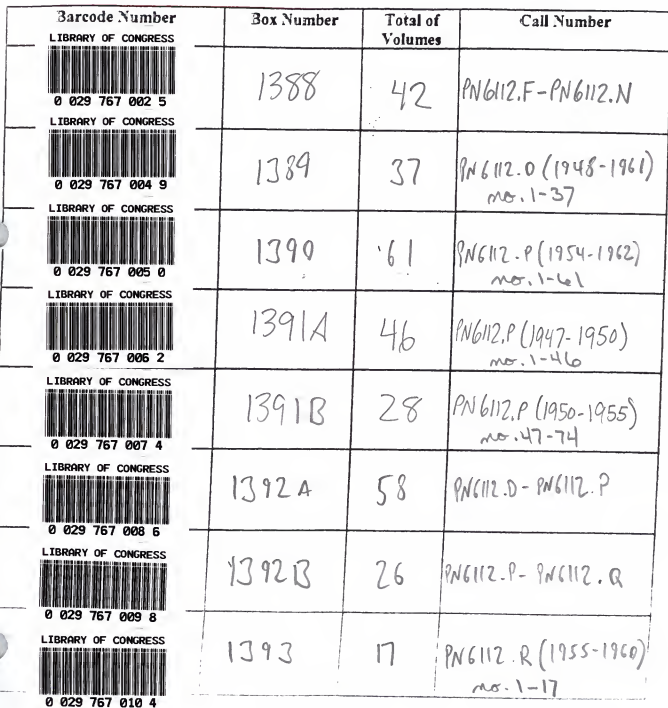 Barcode Number Box Number Total of Volumes Call Number
LIBRARY OF CONGRESS
0 029 767 002 5
1388 42 PN6112.F-PN6112.N
LIBRARY OF CONGRESS
0 029 767 004 9
1389 37 PN6112.O (1948-1961)
no. 1-37
LIBRARY OF CONGRESS
0 029 767 005 0
1390 61 PN6112.P (1954-1962)
no. 1-61
LIBRARY OF CONGRESS
0 029 767 006 2
1391A 46 PN6112.P (1947-1950)
no. 1-46
LIBRARY OF CONGRESS
0 029 767 007 4
1391B 28 PN6112.P (1950-1955)
no. 47-74
LIBRARY OF CONGRESS
0 029 767 008 6
1392A 58 PN6112.D-PN6112.P
LIBRARY OF CONGRESS
0 029 767 009 8
1392B 26 PN6112.P-PN6112.Q
LIBRARY OF CONGRESS
0 029 767 010 4
1393 17 PN6112.R (1955-1960)
no. 1-17